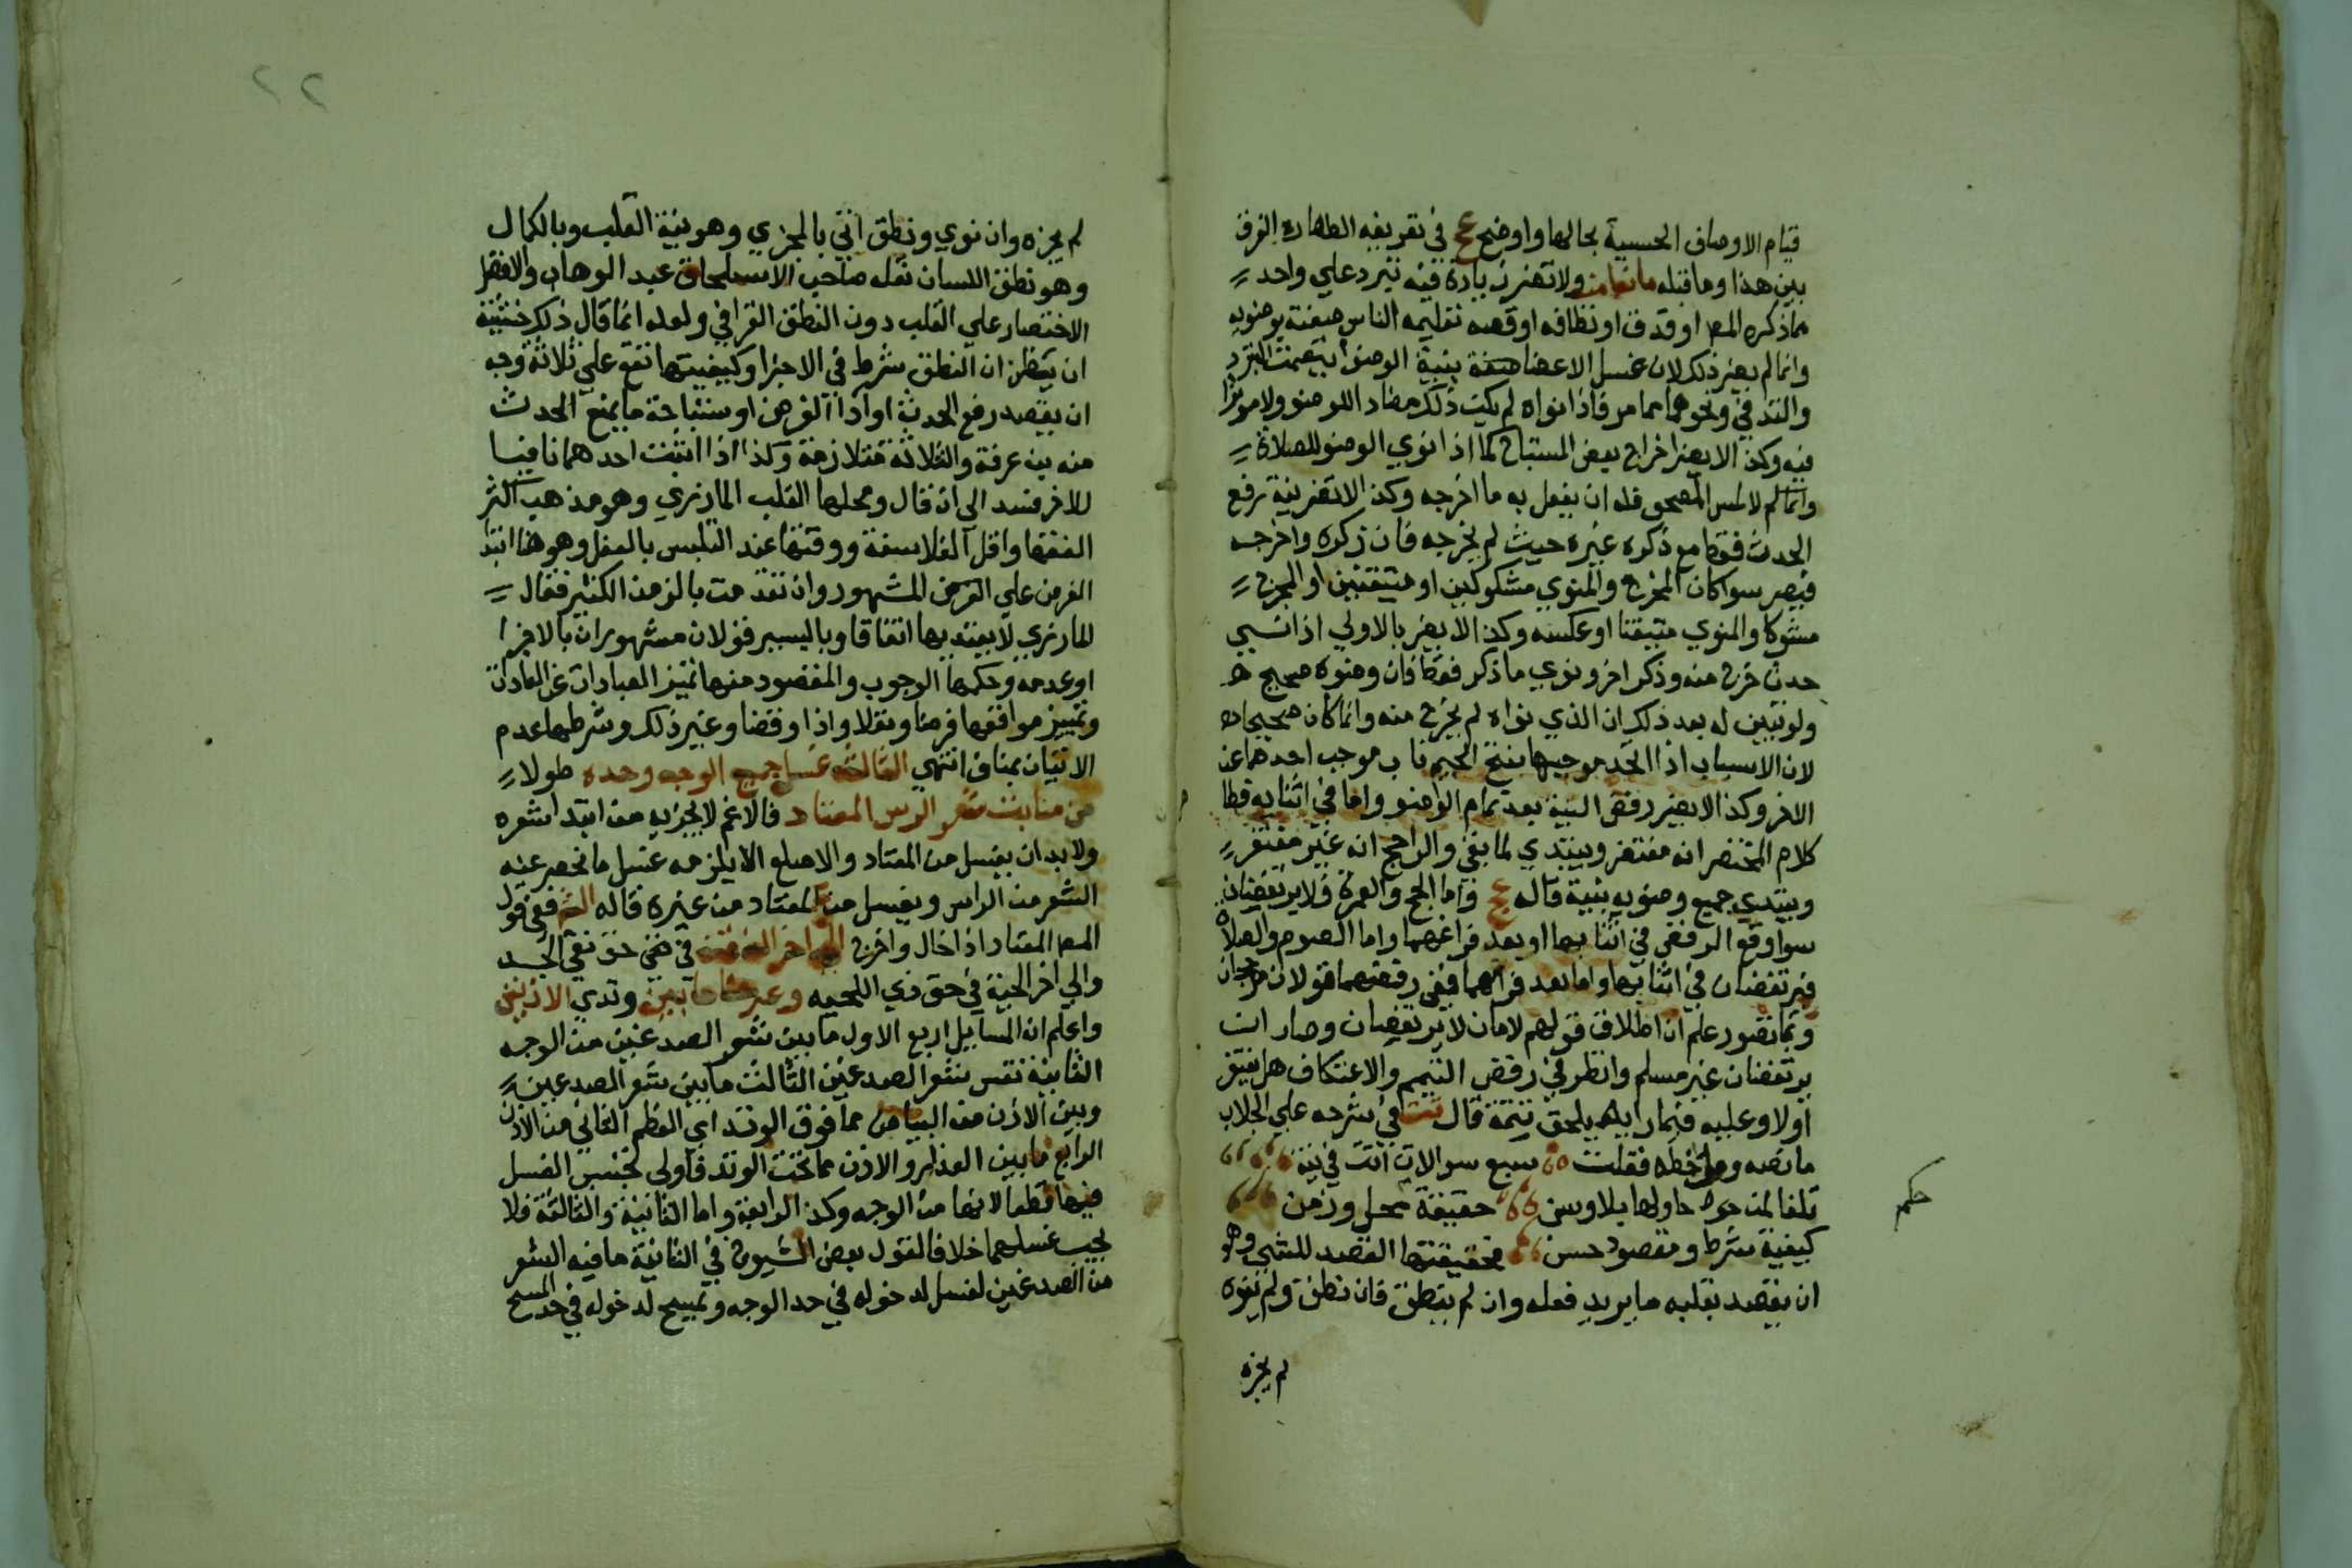 قيام الاوصاف الحسية بحالها واوضح عج في تعريفه الطهارة الفرق
بين هذا وما قبله ولا تضر زيادة فيه تبرد علي واحد
مما ذكره المص او قدف او نظافه او قصد تعليمه الناس صفة وضويه
وانما لم يضر ذلك لان غسل الاعضا بنية الوضوا يتضمن التبرد
والتدفي ونحوهما مما مر فاذا نواه لم يكن ذلك مضادا للوضو ولا موثرا
فيه وكذا لا يضر اخراج بعض المستباح كما اذا نوي الوضو للصلاة
لا لمس المصحف فله ان يفعل به ما اخرجه وكذا لا تضر نية رفع
الحدث فقط مع ذكره غيره حيث لم يخرجه فان ذكره واخرجه
فيضر سوا كان المخرج والمنوي مشكوكين او متيقنين او المخرج
مشوكا والمنوي متيقنا او عكسه وكذا لا يضر بالاولي اذا نسي
حدث خرج منه وذكر اخر ونوي ما ذكر فقط فان وضوه صحيح
ولو تبين له بعد ذلك ان الذي نواه لم يخرج منه وانما كان صحيحا
لان الاسباب اذا اتحد موجبها بفتح الجيم ناب موجب احدهما عن
الاخر وكذا لا يضر رفض النية بعد تمام الوضو واما في اثنايه فظا
كلام المختصر انه مغتفر ويبتدي لما بقي والراجح انه غير مغتفر
ويبتدي جميع وضويه بنية قاله عج واما الحج والعمرة فلا يرتفضان
سوا وقع الرفض في اثنايهما او بعد فراغهما واما الصوم والصلاة
فيرتفضان في اثنايهما واما بعد فراغهما ففي رفضهما قولان مرجحان
وبما تقرر علم ان اطلاق قولهم لا يرتفضان وصار
يرتفضان غير مسلم وانظر في رفض التيمم والاعتكاف هل يغتفر
اولا وعليه فيما رايه يلحق تتمة قال تت في شرحه علي الجلاب
ما نصه ومن خطه فقلت سبع سوالات اتت في نية
تلفا لمن حاولها بلا وسن حقيقة حكم محل وزمن
كيفية شرط ومقصود حسن فحقيقتها القصد للشي وهو
ان يقصد بقلبه ما يريد فعله وان لم ينطق فان نطق ولم ينوه
لم يجزه
حكم
٢٢
لم يجزه وان نوي ونطق اتي بالمجزي وهو نية القلب وبالكمال
وهو نطق اللسان نقله صاحب الاستلحاق عبد الوهاب والافضل
الاختصار علي القلب دون النطق القرافي ولعله انما قال ذلك خشية
ان يتظن ان النطق شرط في الاجزا وكيفيتها تقع علي ثلاثة وجه
ان يقصد رفع الحدث او اذا الفرض او ستباحة ما يمنع الحدث
منه بن عرفة والثلاثة متلازمة وكذا اذا اثبت احدهما نافيا
للاخر فسد الي ان قال ومحلها القلب المازري وهو مذهب اكثر
الفقها واقل الفلاسفة ووقتها عند التلبس بالفعل وهو هنا ابتدا
الفرض علي المشهور وان تقدمت بالزمن الكثير فقال
المازري لا يعتد بها اتفاقا وباليسير فقولان مشهوران بالاجزا
او عدمه وحكمها الوجوب والمقصود منها تمييز العبادات عن العادات
وتمييز موافقها فرضا ونفلا واذا وقضا وغير ذلك وشرطها عدم
الاتيان بمناف انتهي الثالثة غسل جميع الوجه وحده طولا
من منابت شعر الرس المعتاد فالاغم لا يجزيه من ابتدا شعره
ولابد ان يغسل من المعتاد والاصلع لا يلزمه غسل ما انحصر عنه
الشعر من الراس ويغسل من المعتاد من غيره قاله الش ففي قول
المص المعتاد ادخال واخراج الي اخر الذقن في نقي الخد
والي اخر اللحية في حق ذي اللحيه وعرضا ما بين وتدي الاذنين
واعلم ان المسايل اربع الاول ما بين شعر الصدغين من الوجه
الثانية نفس شعر الصدغين الثالث ما بين شعر الصدغين
وبين الاذن من البياض مما فوق الوتد اي العظم الثاني من الاذن
الرابع ما بين العذار والاذن مما تحت الوتد فاولي تختسر الغسل
فيها قطعا لانها من الوجه وكذا الرابعة واما الثانية والثالثة فلا
يجب غسلهما خلافا لقول بعض الشيوخ في الثانية ما فيه الشعر
من الصدغين لغسل لدخوله في حد الوجه وتمسح لدخوله في حد المسح